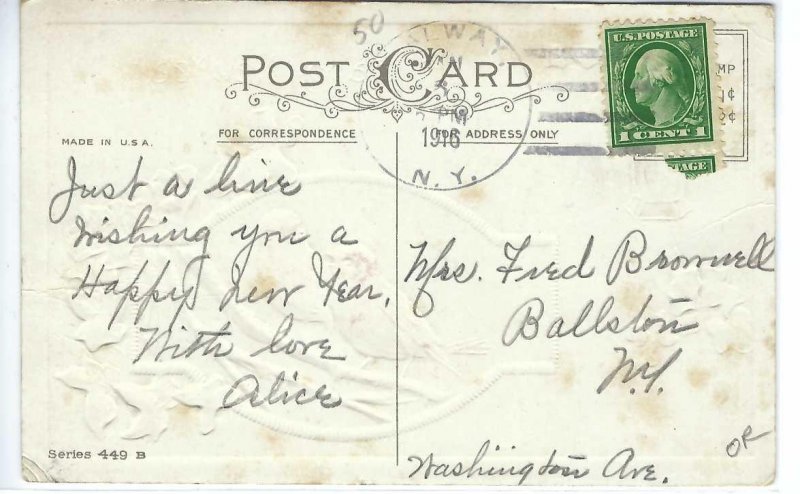 50
POST CARD
MADE IN U.S.A.
FOR CORRESPONDENCE
FOR ADDRESS ONLY
5 PM
1916
N. Y.
U.S. POSTAGE
1 CENT 1
Just a line
wishing you a
Happy New Year.
With love
Alice
Mrs. Fred Brownell
Ballston
N.Y.
Washington Ave.
Series 449 B